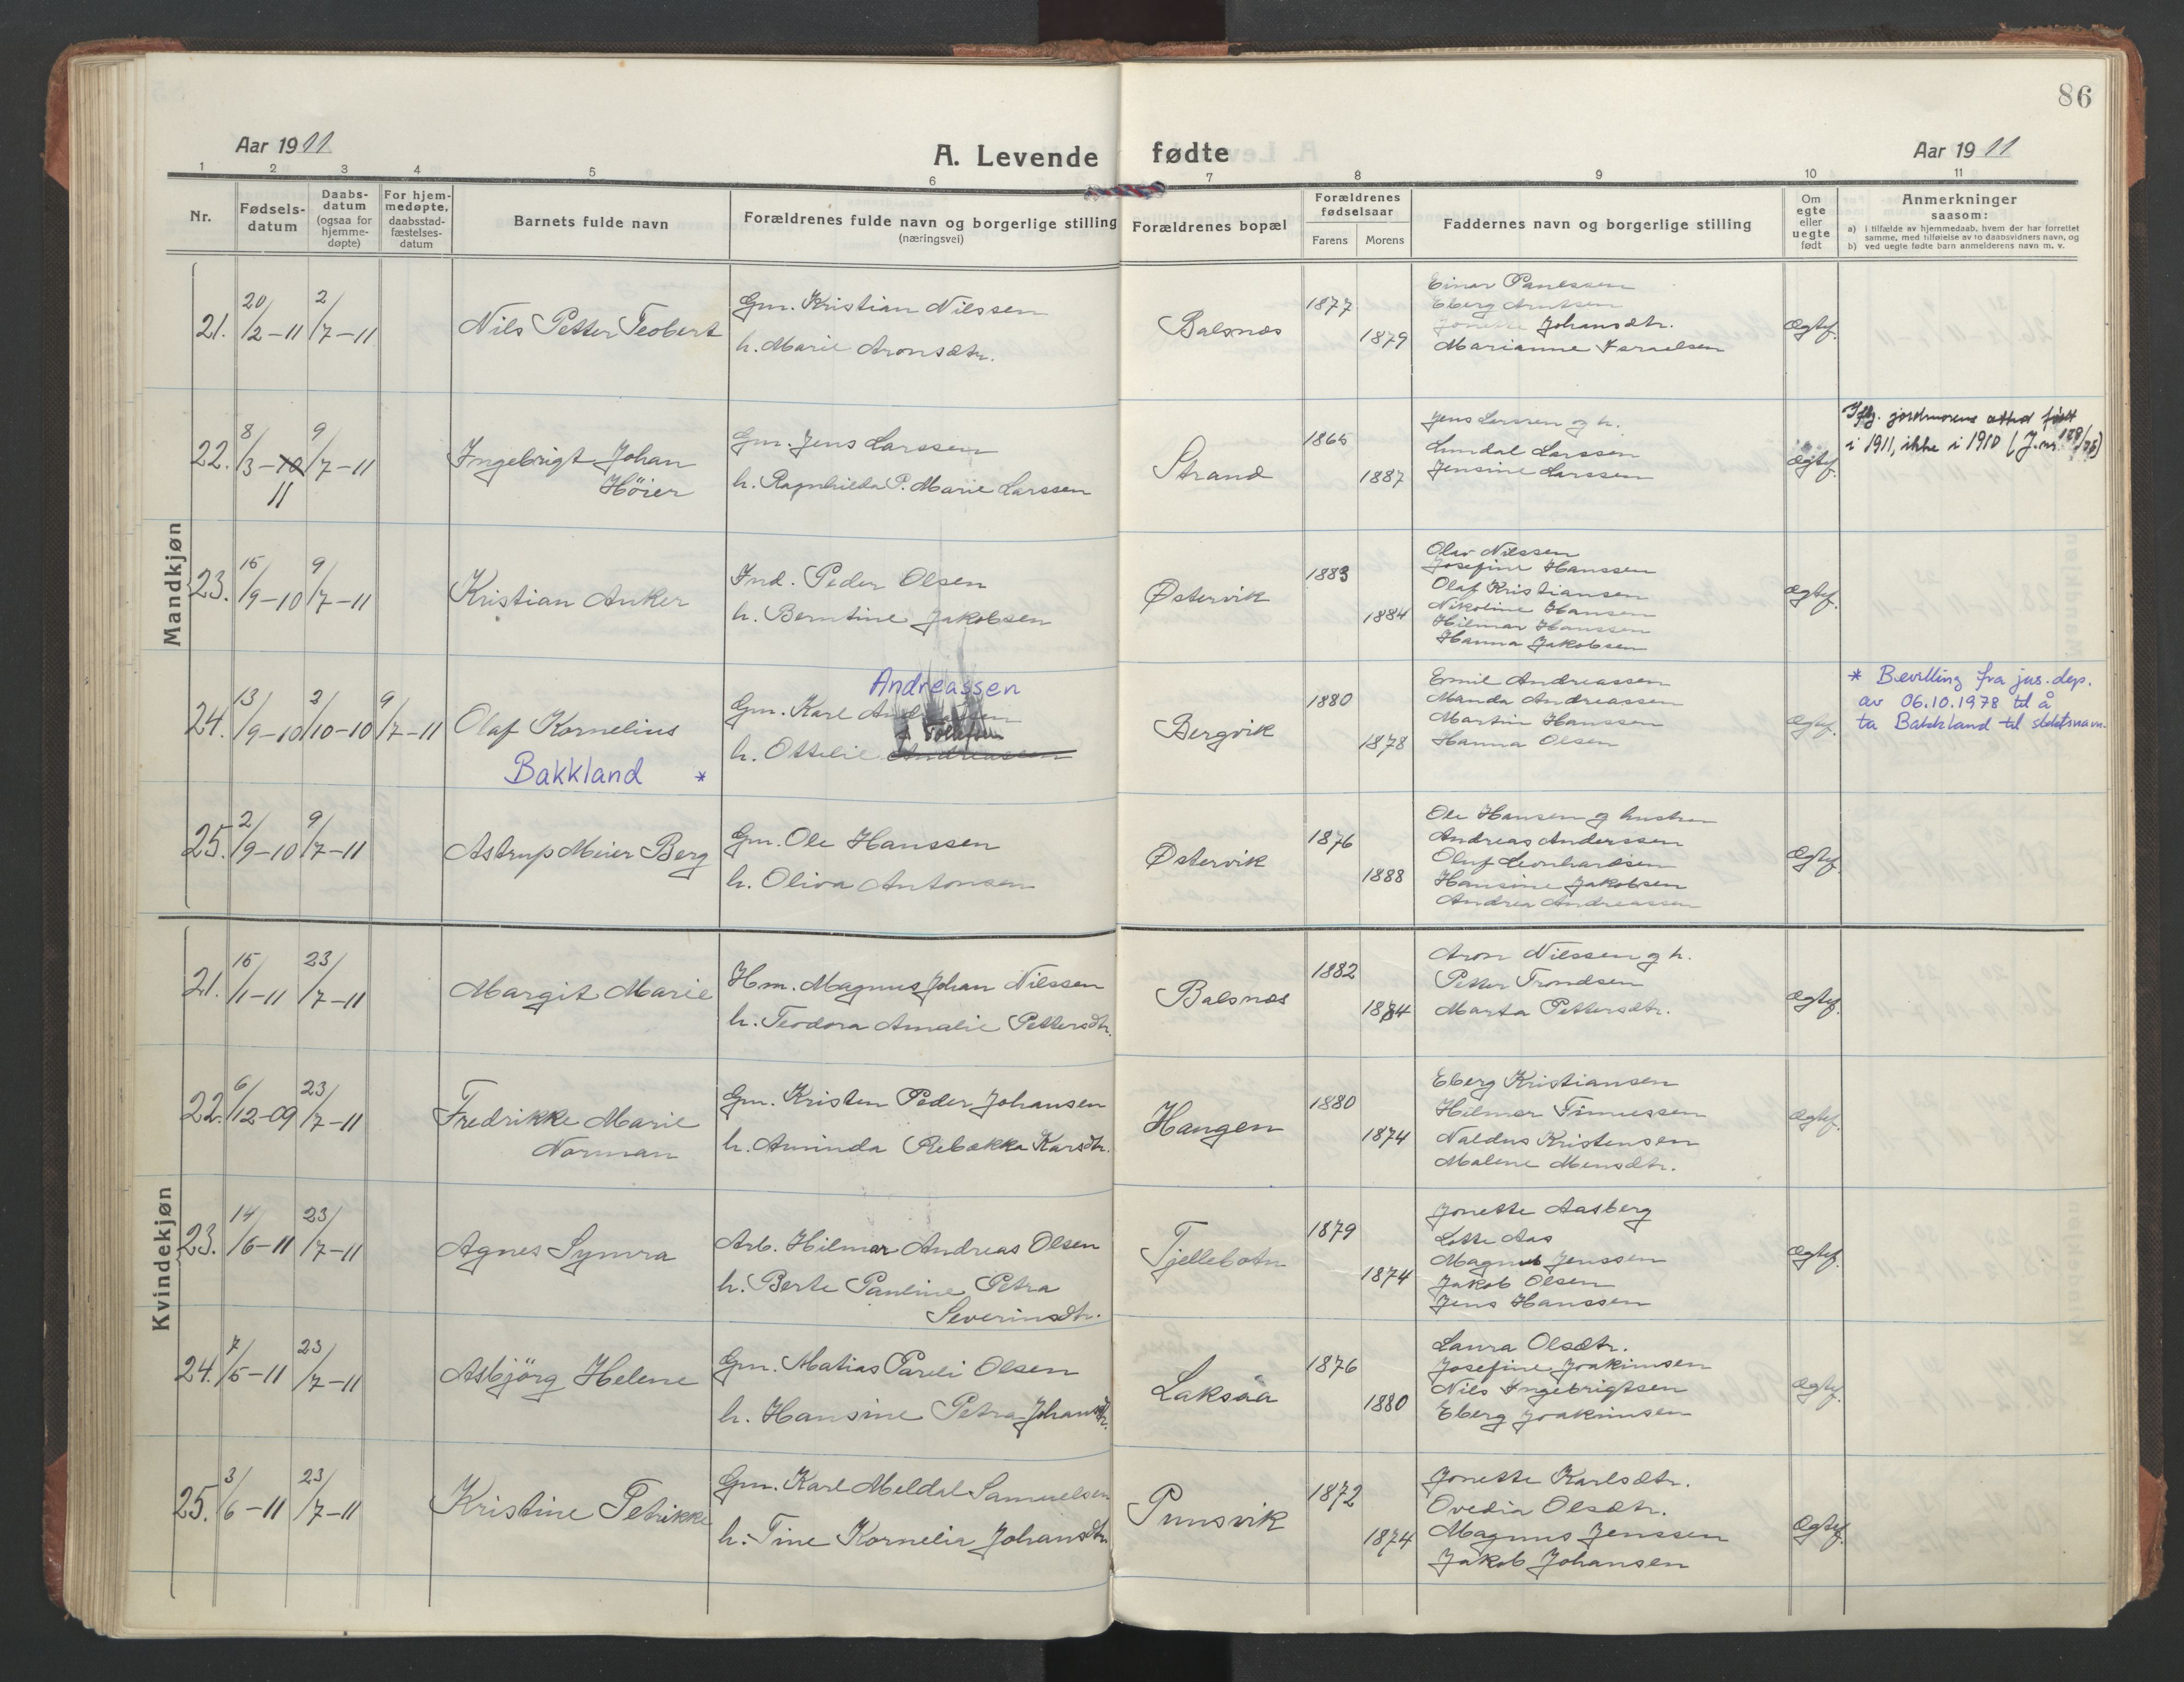 86
Aar 1911
A. Levende fødte
Aar 1911
1 2 3 4 5 6 7 8 9 10 11
Nr.
Fødsels-
datum
Daabs-
datum
(ogsaa for
hjemme-
døpte)
For hjem-
medøpte,
daabsstad-
fæstelses-
datum
Barnets fulde navn
Forældrenes fulde navn og borgerlige stilling
(næringsvei)
Forældrenes bopæl
Forældrenes
fødselsaar
Farens Morens
Faddernes navn og borgerlige stilling
Om
egte
eller
uegte
født
Anmerkninger
saasom:
a) i tilfælde av hjemmedaab, hvem der har forrettet
samme, med tilføielse av to daabsvidners navn, og
b) ved uegte fødte barn anmelderens navn m. v.
Mandkjøn
21. 20/2-11 2/7-11 Nils Petter Teobert
Gm. Kristian Nilssen
h. Marie Aronsdtr.
Balsnes 1877 1879
Einar Paulssen
Eberg Arntsen
Jonette Johansdtr.
Marianne Israelsen
Ægtef.
22. 8/3-10 11 9/7-11 Ingebrigt Johan
Höier
Gm. Jens Larssen
h. Ragnhilda P. Marie Larssen
Strand 1865 1887
Jens Larssen og h.
Lundal Larssen
Jensine Larssen
Ægtef.
Iflg. jordmorens attest født
i 1911, ikke i 1910 (J.nr.
23. 15/9-10 9/7-11 Kristian Anker
Ind. Peder Olsen
h. Berntine Jakobsen
Østervik 1883 1884
Olav Nilssen
Josefine Hanssen
Olaf Kristiansen
Nikoline Hansen
Hilmar Hanssen
Hanna Jakobsen
Ægtef.
24. 13/9-10 2/10-10 9/7-11 Olaf Kornelius
Bakkland *
Andreassen
Gm. Karl
h. Ottelie Andreassen
Bergvik 1880 1878
Emil Andreassen
Manda Andreassen
Martin Hanssen
Hanna Olsen
Ægtef.
* Bevilling fra jus. dep.
av 06.10.1978 til å
ta Bakkland til slektsnavn.
25. 2/9-10 9/7-11 Astrup Meier Berg
Gm. Ole Hanssen
h. Oliva Antonsen
Østervik 1876 1888
Ole Hansen og hustru
Andreas Anderssen
Oluf Leonhardsen
Hansine Jakobsen
Andrea Andreassen
Ægtef.
Kvindekjøn
21. 15/1-11 23/7-11 Margit Marie
Hm. Magnus Johan Nilssen
h. Teodora Amalie Pettersdtr.
Balsnes 1882 1884
Aron Nilssen og h.
Petter Trondsen
Marta Pettersdtr.
Ægtef.
22. 6/12-09 23/7-11 Fredrikke Marie
Norman
Gm. Kristen Peder Johansen
h. Aminda Rebekka Karsdtr.
Haugen 1880 1874
Eberg Kristiansen
Hilmar Timuessen
Naldus Kristensen
Malene Monsdtr.
Ægtef.
23. 14/6-11 23/7-11 Agnes Symra
Arb. Hilmar Andreas Olsen
h. Berte Pauline Petra
Severinsdtr.
Tjellebotn 1879 1874
Jonette Aasberg
Lotte Aas
Magnus Jenssen
Jakob Olsen
Jens Hanssen
Ægtef.
24. 7/5-11 23/7-11 Asbjörg Helene
Gm. Matias Pareli Olsen
h. Hansine Petra Johansdtr.
Laksaa 1876 1880
Laura Olsdtr.
Josefine Joakimsen
Nils Ingebrigtsen
Eberg Joakimsen
Ægtef.
25. 3/6-11 23/7-11 Kristine Petrikke
Gm. Karl Meldal Samuelsen
h. Tine Kornelia Johansdtr.
Punsvik 1872 1874
Jonette Karlsdtr.
Ovedia Olsdtr.
Magnus Jenssen
Jakob Johansen
Ægtef.